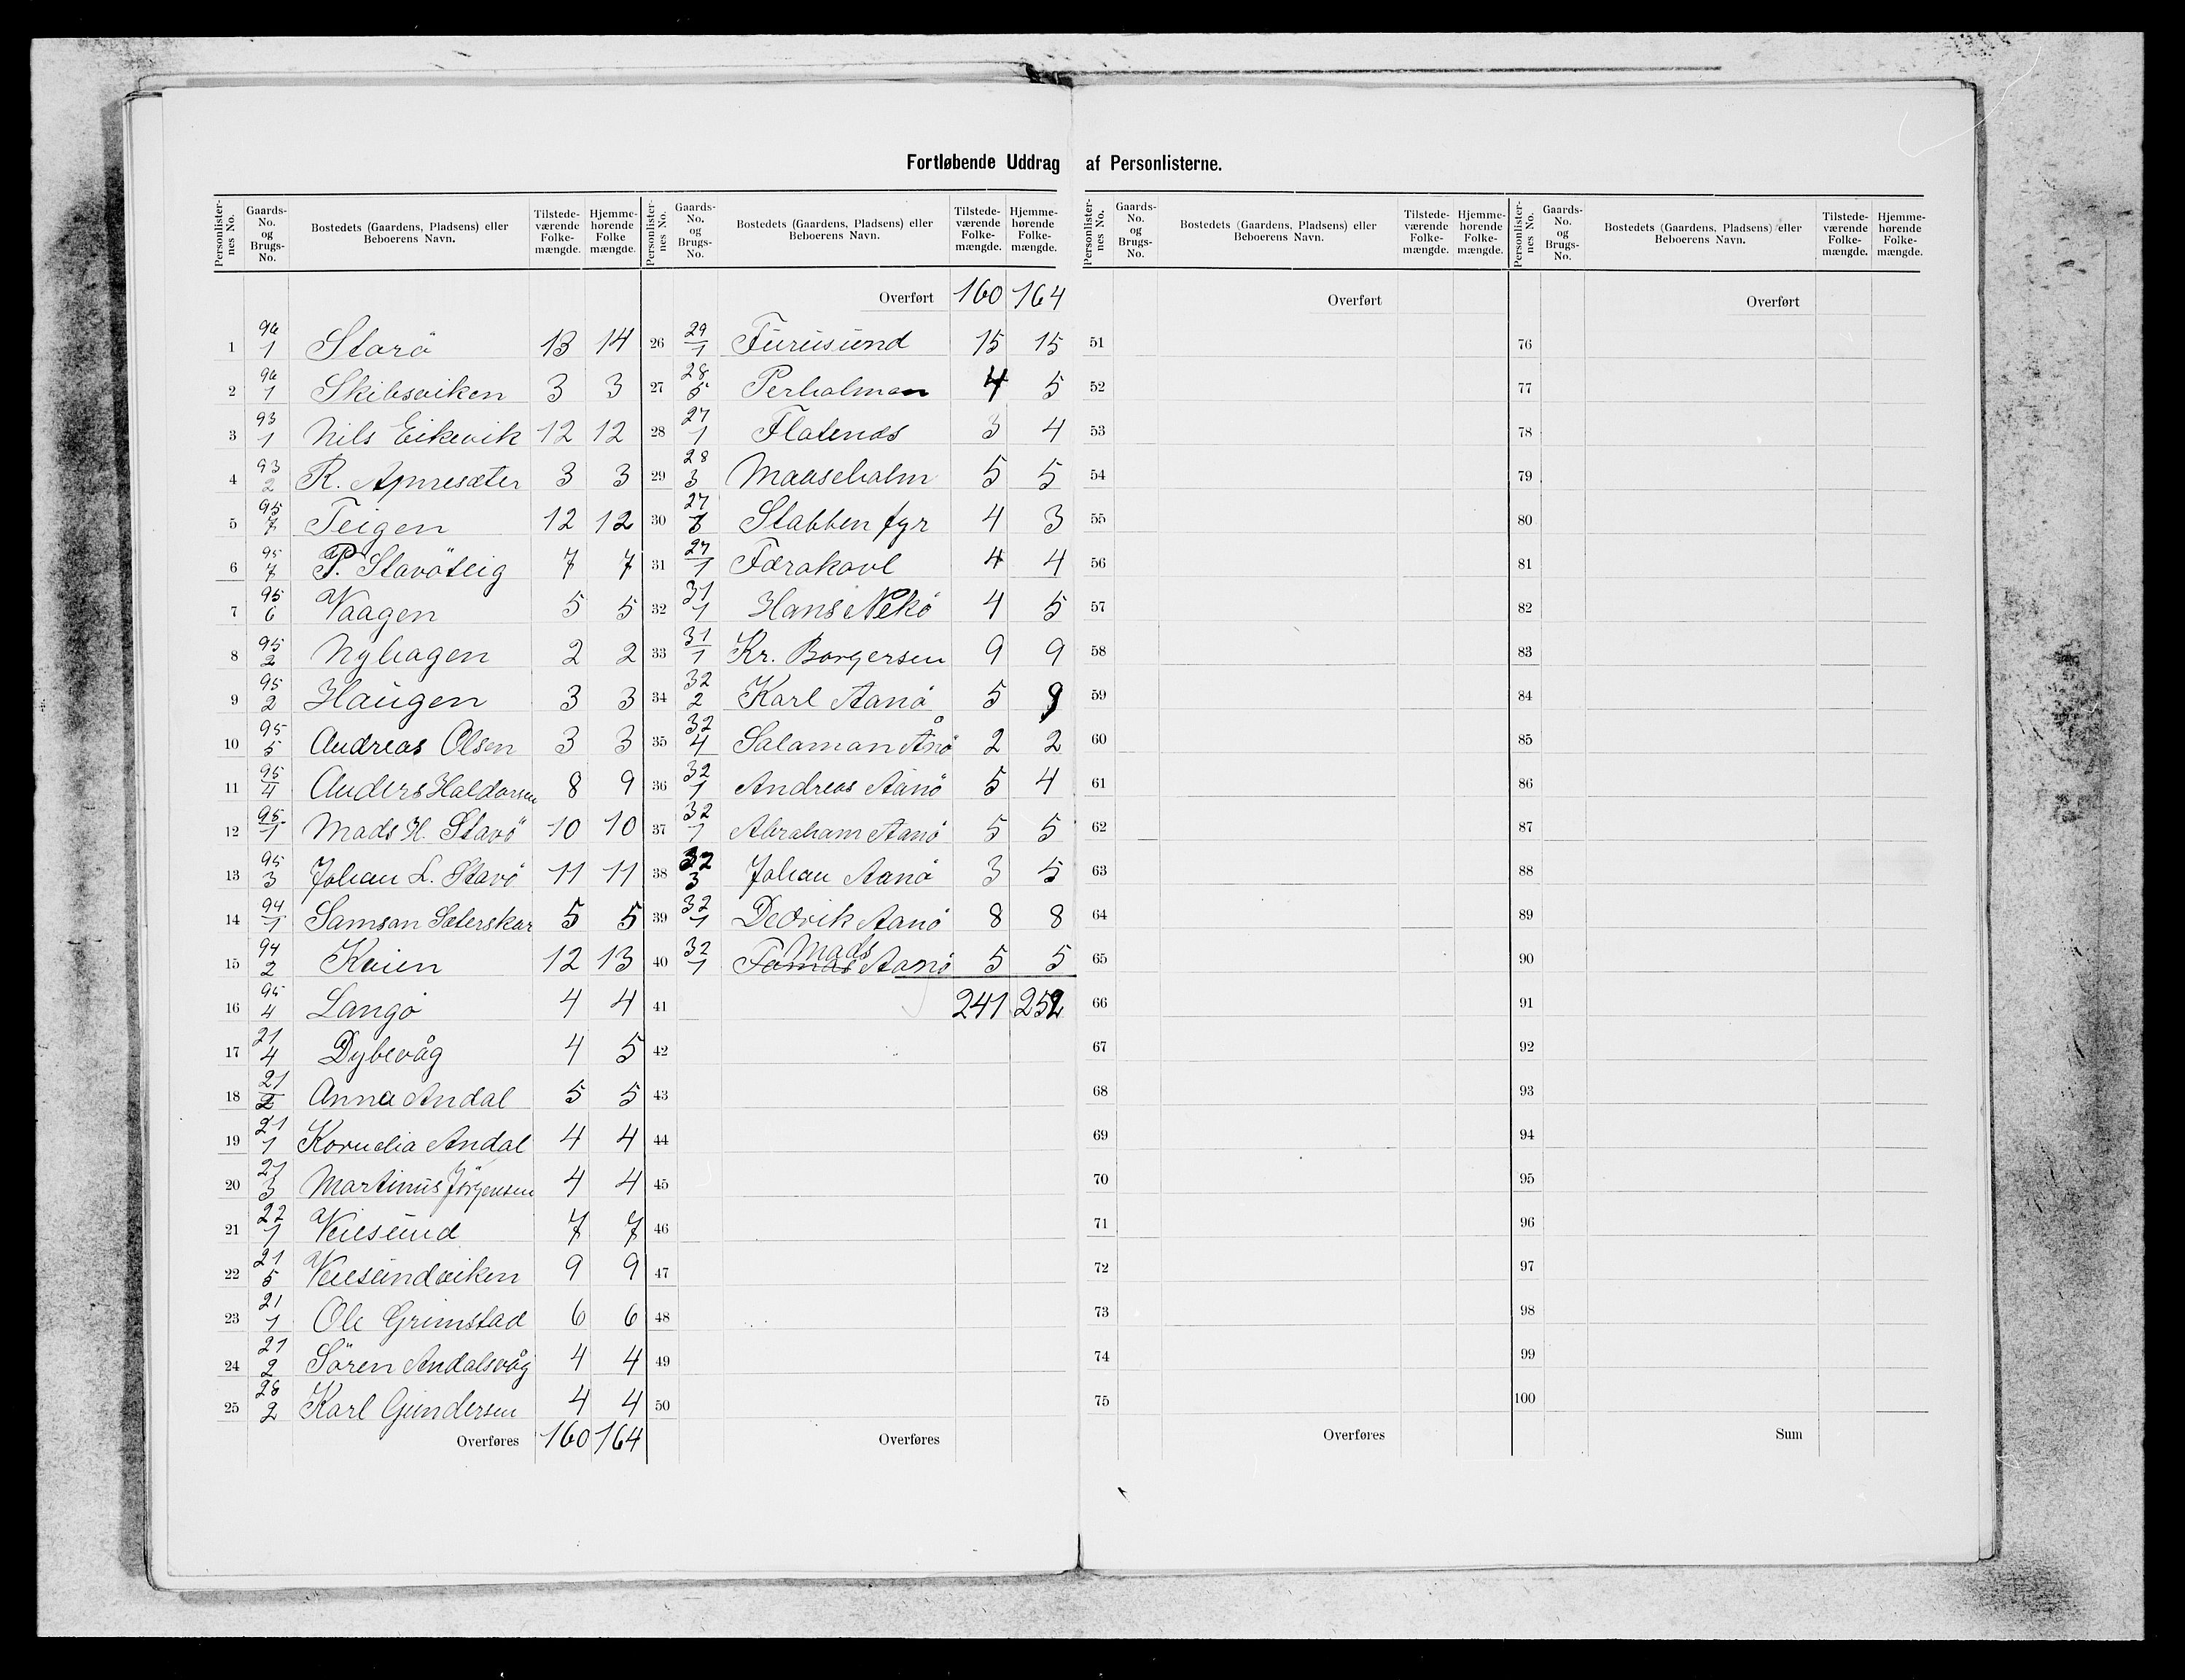 Fortløbende Uddrag af Personlisterne.
Personlister-nes No. Gaards-No. og Brugs-No. Bostedets (Gaardens, Pladsens) eller Beboerens Navn. Tilstede-værende Folke-mængde. Hjemme-hørende Folke mængde.
1 96/1 Storö 13 14
2 96/1 Skibsviken 3 3
3 93/1 Nils Eikevik 12 12
4 93/2 R. 3 3
5 95/7 Teigen 12 12
6 95/7 P. Stavöteig 7 7
7 95/6 Vaagen 5 5
8 95/2 Nyhagen 2 2
9 95/2 Haugen 3 3
10 95/5 Andreas Olsen 3 3
11 95/4 Anders Haldorsen 8 9
12 95/1 Mads H. Stavö 10 10
13 95/3 Johan L. Stavö 11 11
14 94/1 Samson Sæterskar 5 5
15 94/2 Kvien 12 13
16 95/4 Langö 4 4
17 21/4 Dybevåg 4 5
18 21/2 Anna Andal 5 5
19 21/1 Kornelia Andal 4 4
20 21/3 Martinus Jörgensen 4 4
21 22/1 Veiesund 7 7
22 21/5 Veiesundviken 9 9
23 21/1 Ole Grimstad 6 6
24 21/2 Sören Andalsvåg 4 4
25 28/2 Karl Gundersen 4 4
Overføres 160 164
Personlister-nes No. Gaards-No. og Brugs-No. Bostedets (Gaardens, Pladsens) eller Beboerens Navn. Tilstede-værende Folke-mængde. Hjemme-hørende Folke-mængde.
Overført 160 164
26 29/1 Furusund 15 15
27 28/5 Perholmen 4 5
28 27/1 Flatenæs 3 4
29 28/3 Maaseholm 5 5
30 27/ Stabben fyr 4 3
31 27/1 Færøkavl 4 4
32 31/1 Hans Nekö 4 5
33 31/1 Kr. Borgersen 9 9
34 32/2 Karl Aanö 5 9
35 32/4 Salamon Ånö 2 2
36 32/1 Andreas Aanö 5 4
37 32/1 Abraham Aanö 5 5
38 32/3 Johan Aanö 3 5
39 32/1 Dedrik Aanö 8 8
40 32/1 Tomas Mads Aanö 5 5
41 241 252
42
43
44
45
46
47
48
49
50
Overføres
Personlister-nes No. Gaards-No. og Brugs-No. Bostedets (Gaardens, Pladsens) eller Beboerens Navn. Tilstede-værende Folke-mængde. Hjemme-hørende Folke-mængde.
Overført
51
52
53
54
55
56
57
58
59
60
61
62
63
64
65
66
67
68
69
70
71
72
73
74
75
Overføres
Personlister-nes No. Gaards-No. og Brugs-No. Bostedets (Gaardens, Pladsens) eller Beboerens Navn. Tilstede-værende Folke-mængde. Hjemme-hørende Folke-mængde.
Overført
76
77
78
79
80
81
82
83
84
85
86
87
88
89
90
91
92
93
94
95
96
97
98
99
100
Sum